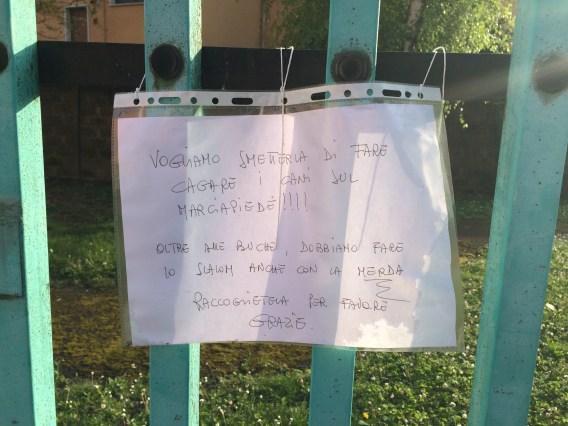 VOGLIAMO SMETTERLA DI FARE
CAGARE I CANI SUL
MARCIAPIEDE!!!!
OLTRE ALLE BUCHE, DOBBIAMO FARE
LO SLALOM ANCHE CON LA MERDA
RACCOGLIETELA PER FAVORE
GRAZIE.